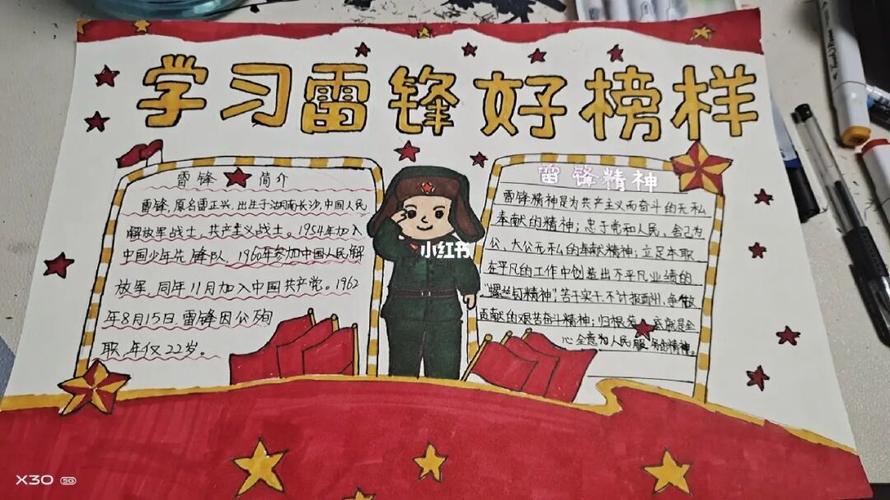 学习雷锋好榜样
雷锋 简介
雷锋,原名雷正兴,出生于湖南长沙,中国人民
解放军战士,共产主义战士。1954年加入
中国少年先锋队,1960年参加中国人民解
放军,同年11月加入中国共产党。1962
年8月15日,雷锋因公殉
职,年仅22岁。
小红书
雷锋精神
雷锋精神是为共产主义而奋斗的无私
奉献的精神;忠于党和人民,舍己为
公,大公无私的奉献精神;立足本职
在平凡的工作中创造出不平凡业绩的
"螺丝钉精神";苦干实干,不计报酬,争做
贡献的艰苦奋斗精神;归根 底就是全
心全意为人民服务的精神。
X30 5G